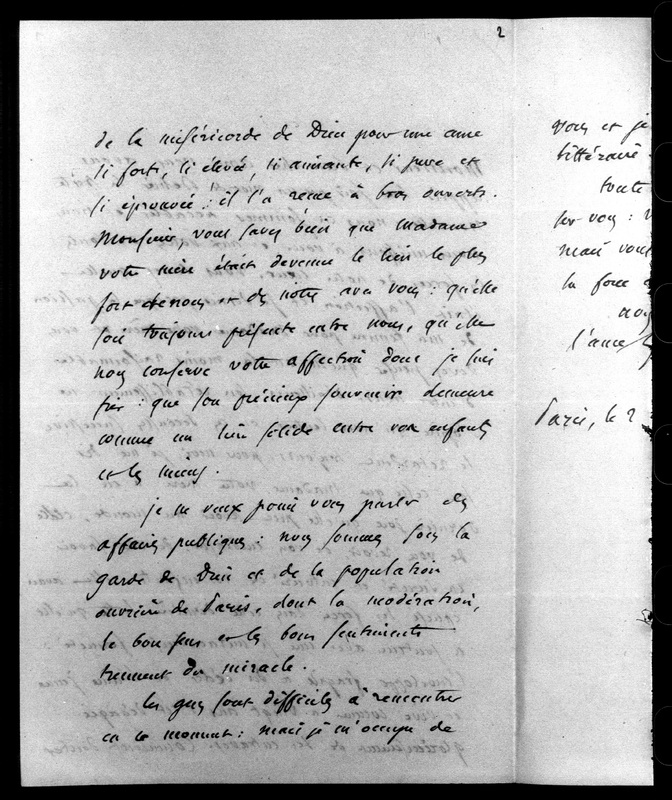 2
de la miséricorde de Dieu pour une ame
si forte, si élevée, si aimante, si pure et
si éprouvée : il l'a recue à bras ouverts.
Monsieur, vous savez bien que Madame
votre mère était devenue le lien le plus
fort de nous et des notres avec vous : qu'elle
soit toujours présente entre nous, qu'elle
nous conserve votre affection dont je suis
fier : que son précieux souvenir demeure
comme un lien solide entre vos enfants
et les miens.
je ne veux point vous parler des
affaires publiques : nous sommes sous la
garde de Dieu et de la population
ouvrière de Paris, dont la modération,
le bon sens et les bons sentiments
tiennent du miracle.
les gens sont difficiles à rencontrer
en ce moment : mais je m'occupe de
vous et je
littéraire
toute
ser vous :
mais vous
la force
nous
l'ame
Paris, le 2